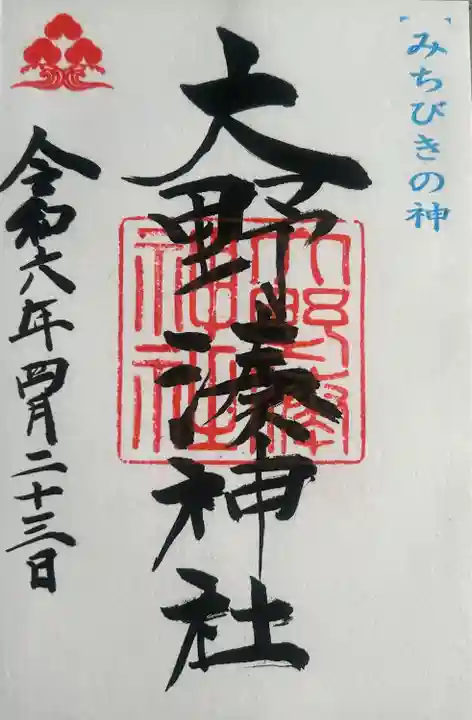 みちびきの神
大野湊神社
大野湊神社
令和六年四月二十三日